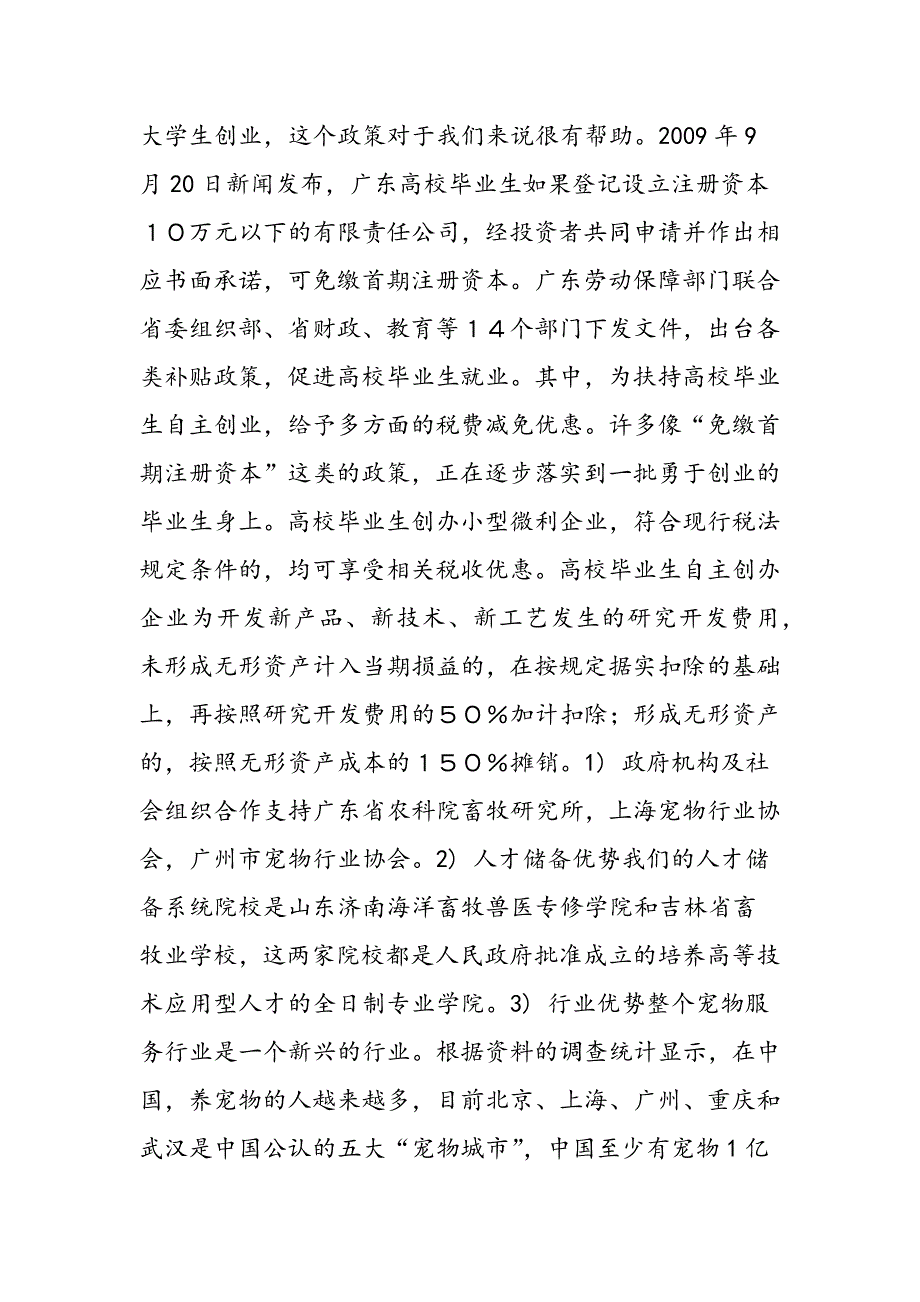 大学生创业，这个政策对于我们来说很有帮助。2009 年 9
月 20 日新闻发布，广东高校毕业生如果登记设立注册资本
１０万元以下的有限责任公司，经投资者共同申请并作出相
应书面承诺，可免缴首期注册资本。广东劳动保障部门联合
省委组织部、省财政、教育等１４个部门下发文件，出台各
类补贴政策，促进高校毕业生就业。其中，为扶持高校毕业
生自主创业，给予多方面的税费减免优惠。许多像“免缴首
期注册资本”这类的政策，正在逐步落实到一批勇于创业的
毕业生身上。高校毕业生创办小型微利企业，符合现行税法
规定条件的，均可享受相关税收优惠。高校毕业生自主创办
企业为开发新产品、新技术、新工艺发生的研究开发费用，
未形成无形资产计入当期损益的，在按规定据实扣除的基础
上，再按照研究开发费用的５０％加计扣除；形成无形资产
的，按照无形资产成本的１５０％摊销。1）政府机构及社
会组织合作支持广东省农科院畜牧研究所，上海宠物行业协
会，广州市宠物行业协会。2）人才储备优势我们的人才储
备系统院校是山东济南海洋畜牧兽医专修学院和吉林省畜
牧业学校，这两家院校都是人民政府批准成立的培养高等技
术应用型人才的全日制专业学院。3）行业优势整个宠物服
务行业是一个新兴的行业。根据资料的调查统计显示，在中
国，养宠物的人越来越多，目前北京、上海、广州、重庆和
武汉是中国公认的五大“宠物城市”，中国至少有宠物 1 亿